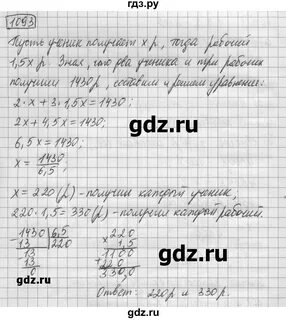 1093
Пусть ученик получает x р, тогда рабочий
1,5x р. Зная, что два ученика и три рабочих
получили 1430р, составим и решим уравнение:
2·x + 3·1,5x = 1430;
2x + 4,5x = 1430;
6,5x = 1430;
x = 1430/6,5;
x = 220 (р) - получил каждый ученик,
220·1,5 = 330 (р) - получил каждый рабочий.
1430 | 6,5
13 | 220
13
13
0
× 220
1,5
1100
+ 220
330,0
Ответ: 220р и 330р.
gdz.ru
gdz.ru
gdz.ru
gdz.ru
gdz.ru
gdz.ru